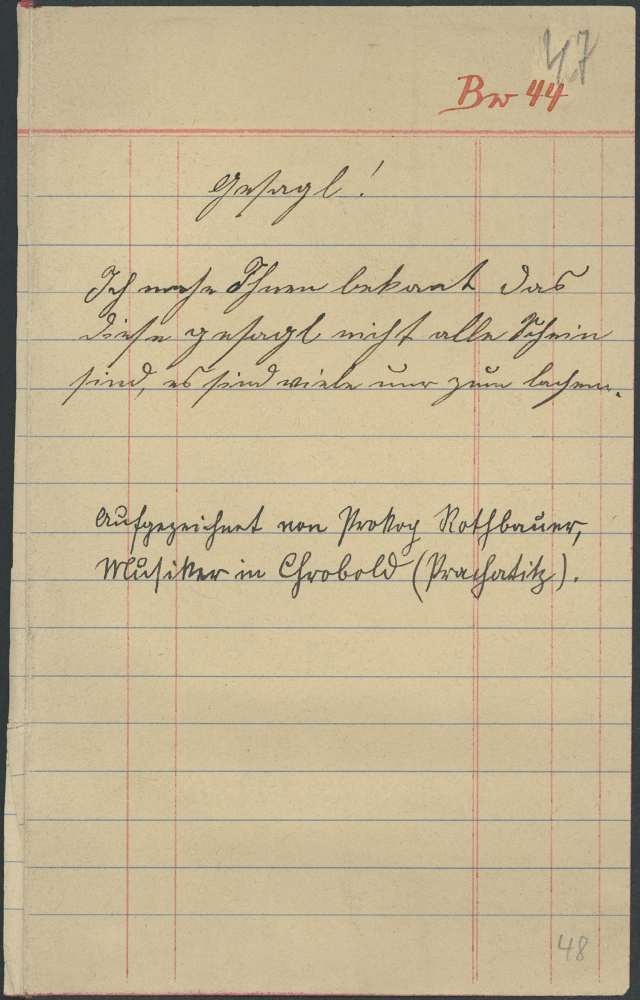 47
Bw 44
Gesagl!
Ich mache Ihnen bekant das
diese gesagl nicht alle Schein
sind, es sind viele nur zum lachen.
Aufgezeichnet von Prokop Rothbauer,
Musiker in Chrobold (Prachatitz).
48